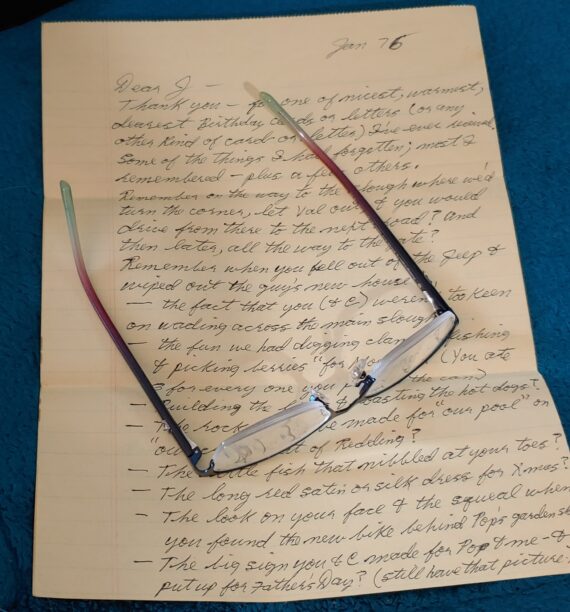 Jan 76
Dear J —
Thank you — for one of nicest, warmest,
dearest Birthday cards or letters (or any
other kind of card or letter) I've ever received.
Some of the things I had forgotten; most I
remembered — plus a few others.
Remember on the way to the slough where we'd
turn the corner, let Val out & you would
drive from there to the next road? And
then later, all the way to the gate?
Remember when you fell out of the Jeep &
wiped out the guy's new house
— the fact that you (& C.) weren't too keen
on wading across the main slough
— the fun we had digging clams, fishing
& picking berries "for (You ate
3 for every one you the can)
— Building the & roasting the hot dogs?
— The rock made for "our pool" on
"our of Redding?
— The little fish that nibbled at your toes?
— The long red satin or silk dress for Xmas?
— The look on your face & the squeal when
you found the new bike behind Pop's garden
— The big sign you & C made for Pop & me — &
put up for Father's Day? (still have that picture.